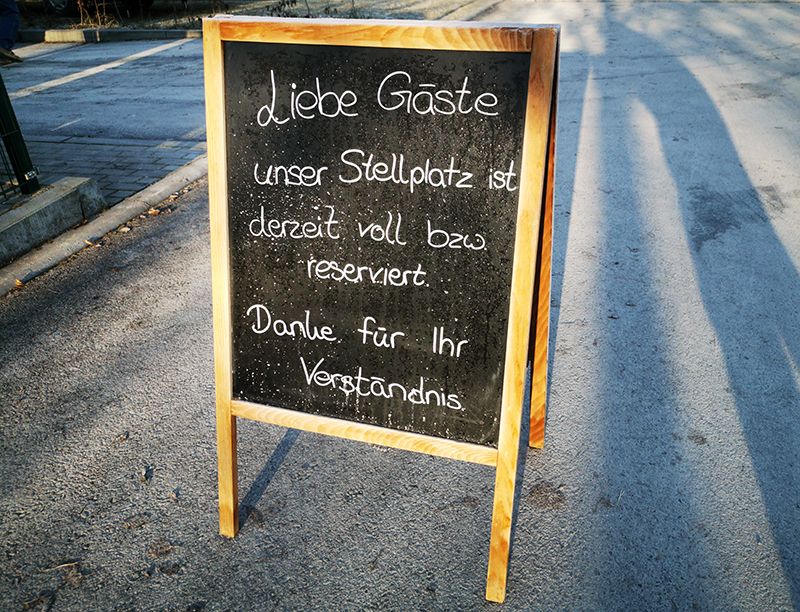 Liebe Gäste
unser Stellplatz ist
derzeit voll bzw.
reserviert.
Danke für Ihr
Verständnis.